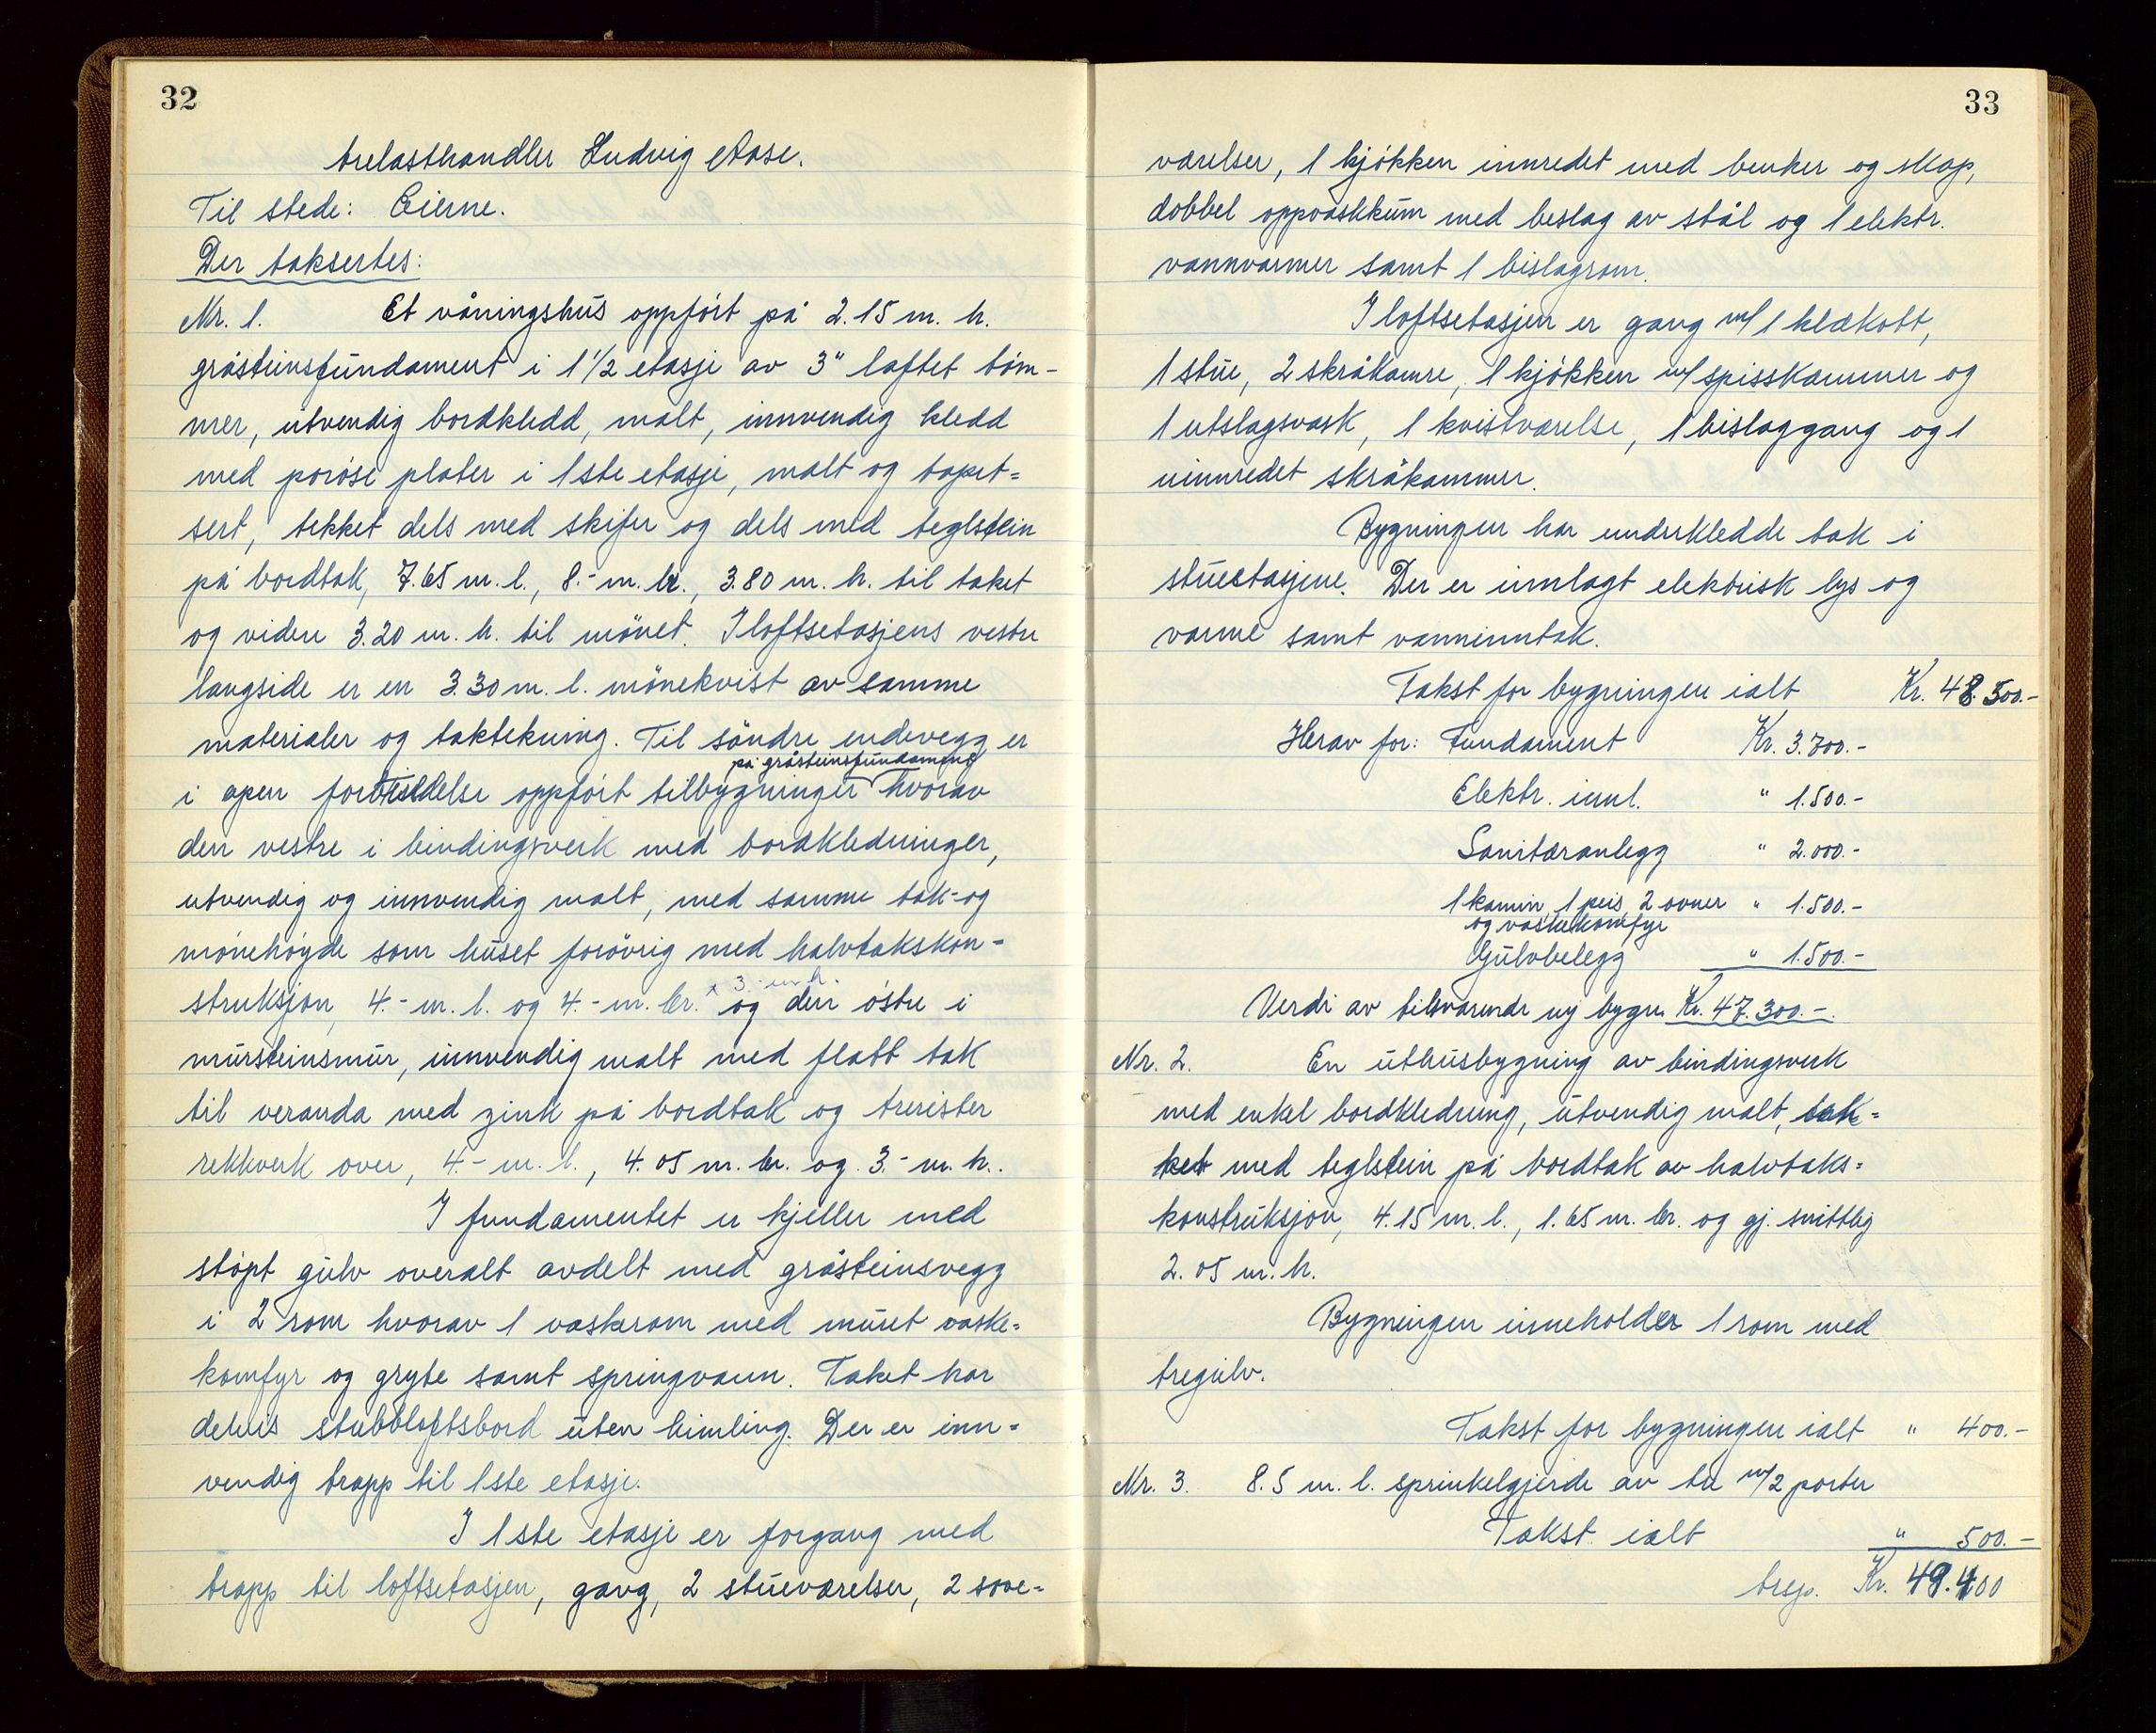 32
trelasthandler Ludvig Aase.
Til stede: Eierne.
Der taksertes:
Nr. 1. Et våningshus oppført på 2.15 m. h.
gråsteinsfundament i 1 1/2 etasje av 3" laftet töm-
mer, utvendig bordkledd, malt, innvendig kledd
med porøse plater i 1ste etasje, malt og tapet=
sert, tekket dels med skifer og dels med teglstein
på bordtak, 7.65 m. l., 8.- m. br., 3.80 m. h. til taket
og videre 3.20 m. h. til mønet. I loftsetasjens vestre
langside er en 3.30 m. l. mönekvist av samme
materialer og taktekning. Til söndre endevegg er
på gråsteinsfundament
i åpen forbindelse oppført tilbygninger hvorav
den vestre i bindingsverk med bordkledninger,
utvendig og innvendig malt, med samme tak- og
mönehøyde som huset forövrig med halvtakskon=
struksjon, 4.- m. l. og 4.- m. br. x 3.- m. h. og den østre i
mursteinsmur, innvendig malt med flatt tak
til veranda med zink på bordtak og trerister
rekkverk over, 4.- m. l., 4.05 m. br. og 3.- m. h..
I fundamentet er kjeller med
støpt gulv overalt avdelt med gråsteinsvegg
i 2 rom hvorav 1 vaskerom med muret vaske=
komfyr og gryte samt springvann. Taket har
delvis stubbloftsbord uten himling. Der er inn=
vendig trapp til 1ste etasje.
I 1ste etasje er forgang med
trapp til loftsetasjen, gang, 2 stueværelser, 2 sove=
33
værelser, 1 kjøkken innredet med benker og skap,
dobbel oppvaskkum med beslag av stål og 1 elektr.
vannvarmer samt 1 bislagrom.
I loftsetasjen er gang m/ 1 klækott,
1 stue, 2 skråkamre, 1 kjøkken m/ spisskammer og
1 utslagsvask, 1 kvistværelse, 1 bislaggang og 1
uinnredet skråkammer.
Bygningen har underkledde tak i
stuetasjene. Der er innlagt elektrisk lys og
varme samt vanninntak.
Takst for bygningen ialt Kr. 48.500.-
Herav for: Fundament Kr. 3.700.-
Elektr. innl. " 1.500.-
Sanitæranlegg " 2.000.-
1 kamin, 1 peis, 2 ovner " 1.500.-
og vaskekomfyr
Gulvbelegg " 1.500.-
Verdi av tilsvarende ny bygn. Kr. 47.300.-
Nr. 2. En uthusbygning av bindingsverk
med enkel bordkledning, utvendig malt, tek=
ket med teglstein på bordtak av halvtaks=
konstruksjon, 4.15 m. l., 1.65 m. br. og gj. snittlig
2.05 m. h.
Bygningen inneholder 1 rom med
tregulv.
Takst for bygningen ialt " 400.-
Nr. 3. 8.5 m. l. sprinkelgjerde av tre m/ 2 porter
Takst ialt " 500.-
trsp. Kr. 49.400